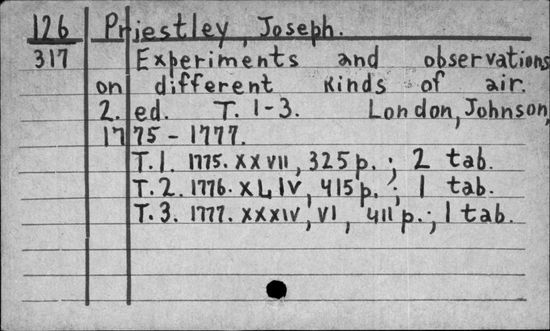 126 Priestley, Joseph.
317 Experiments and observations
on different kinds of air.
2. ed. T. 1-3. London, Johnson,
1775-1777.
T.1. 1775. XXVII, 325 p.; 2 tab.
T.2. 1776. XLIV, 415 p.; 1 tab.
T.3. 1777. XXXIV, VI, 411 p.; 1 tab.